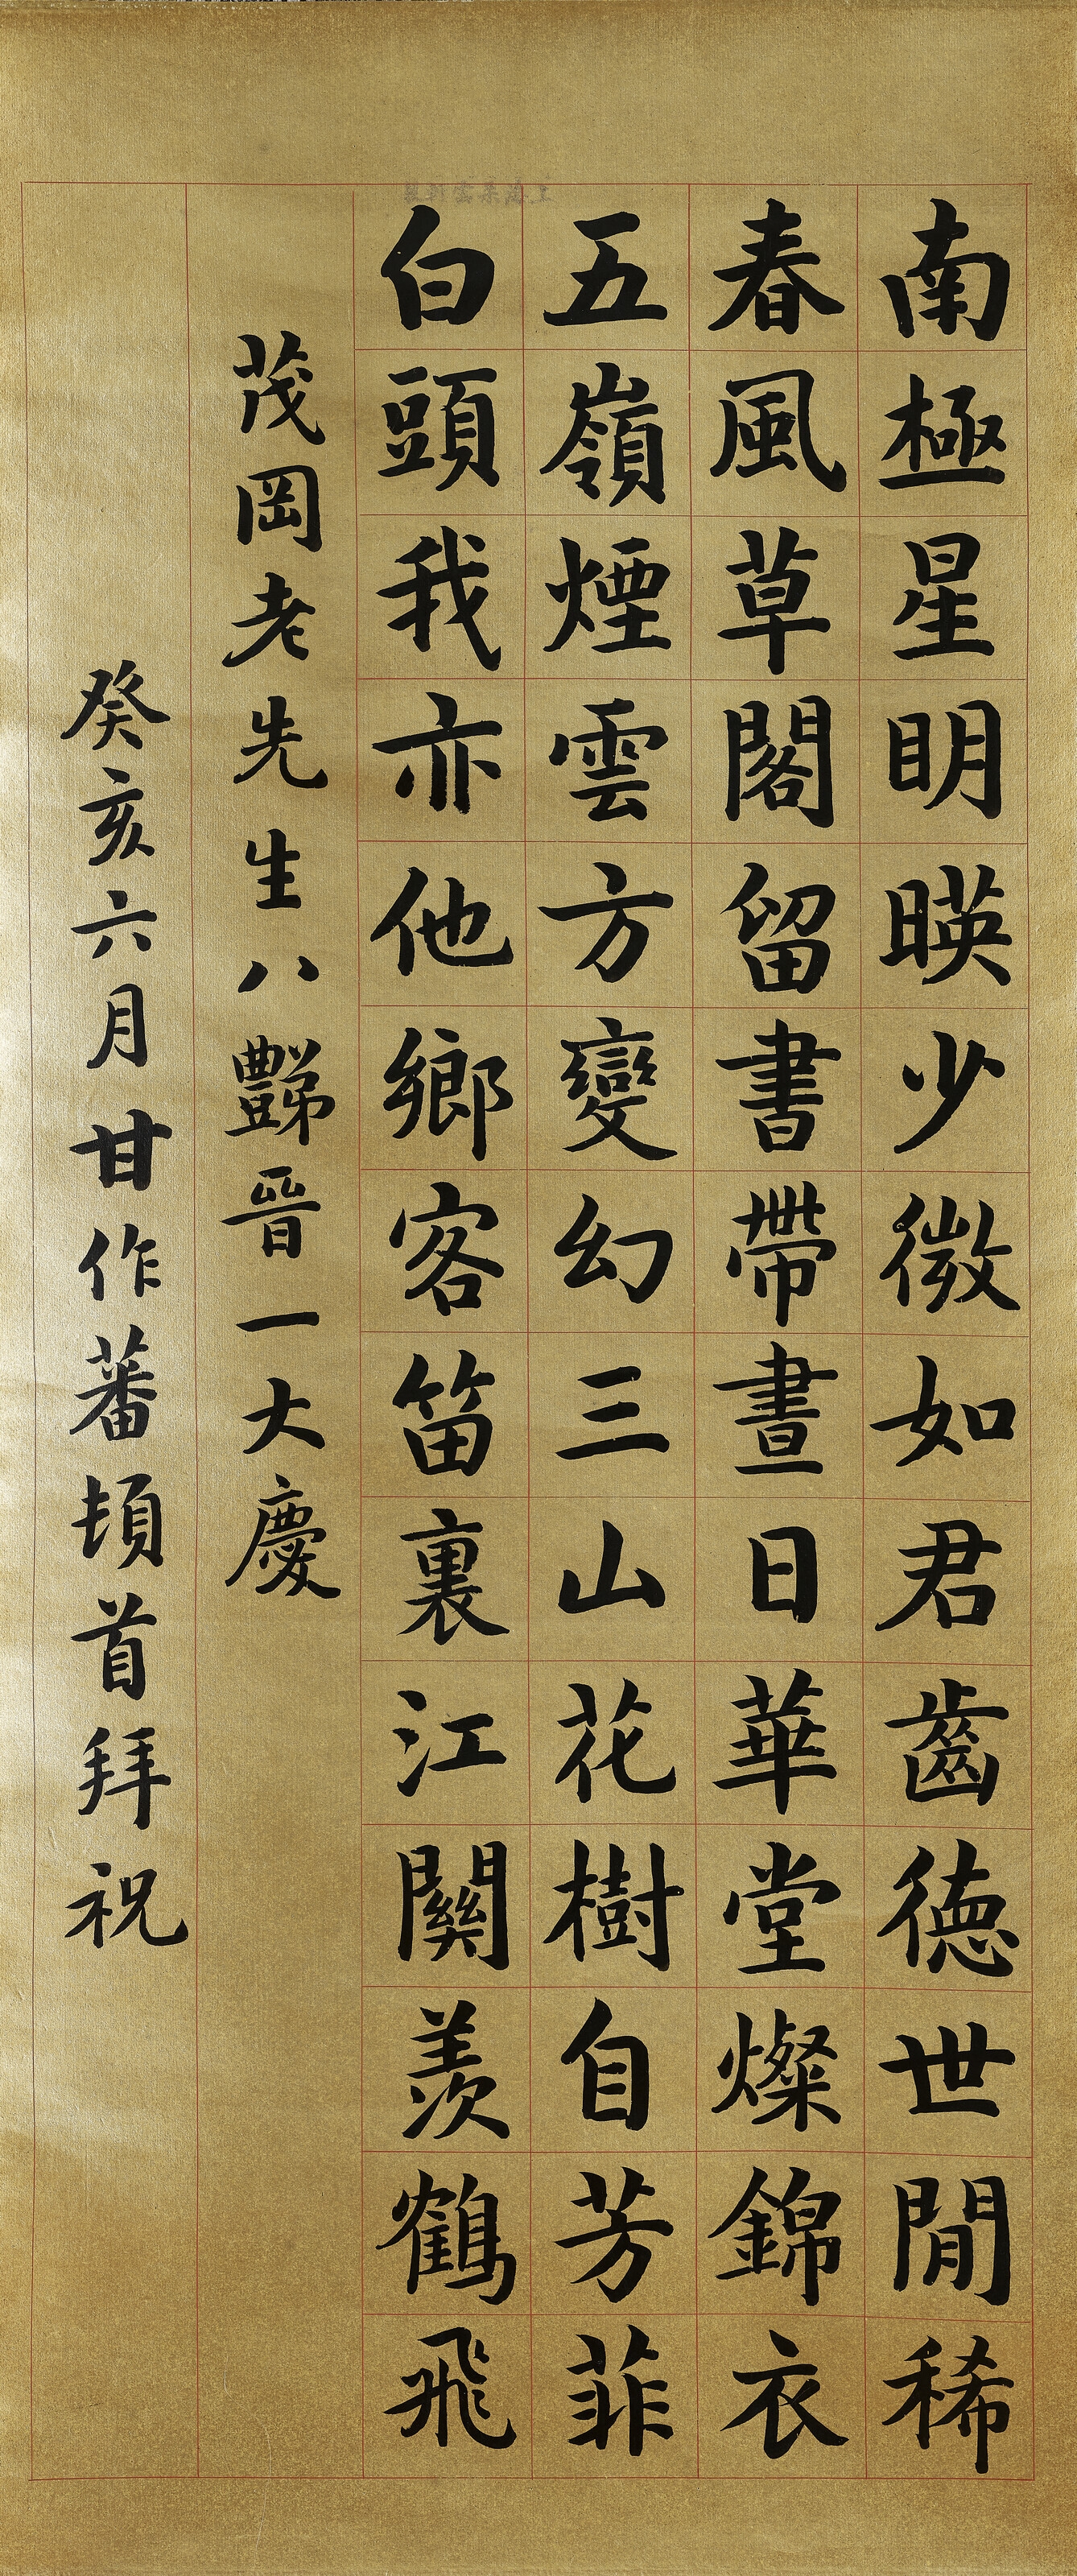 南極星明暎少微如君齒德世閒稀
春風草閣留書帶晝日華堂燦錦衣
五嶺煙雲方變幻三山花樹自芳菲
白頭我亦他鄉客笛裏江關羨鶴飛
茂岡老先生八豒晉一大慶
癸亥六月甘作蕃頓首拜祝